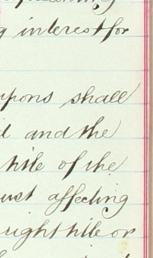 g interest for
upons shall
d and the
title of the
ust affecting
right title or